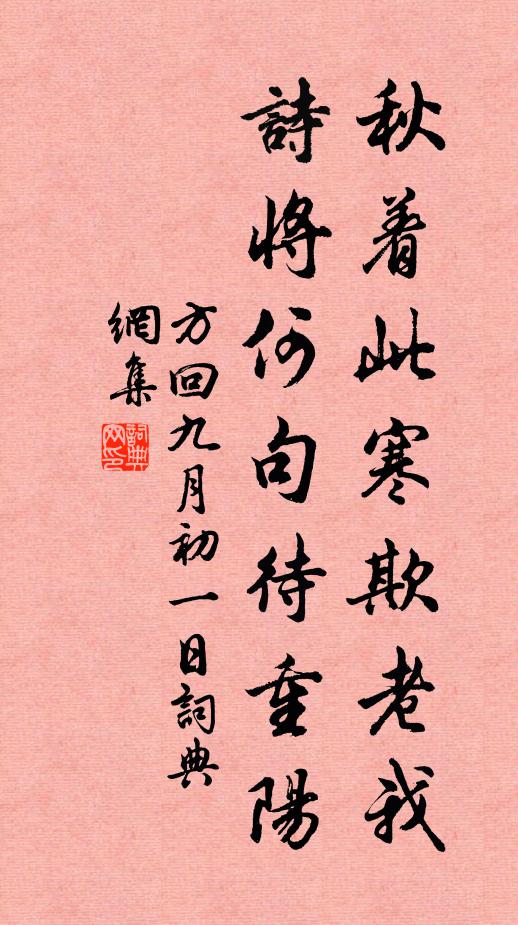 秋着此寒欺老我
詩將何句待重陽
方回九月初一日詞典
網集
詞典網印